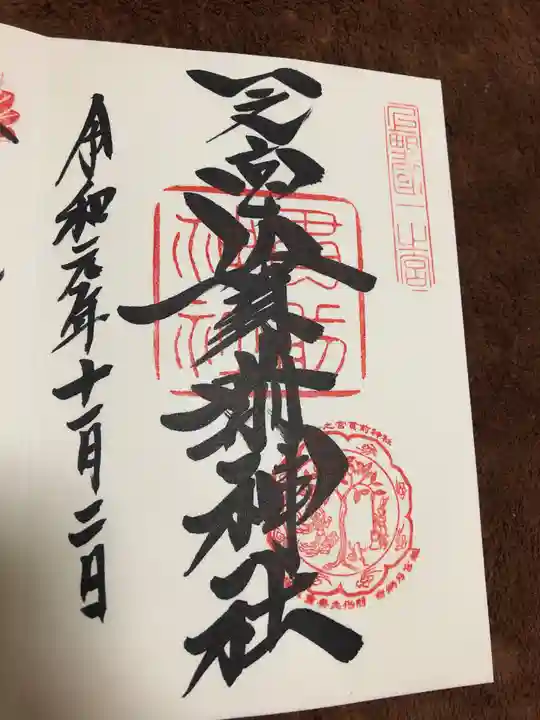 上野國一之宮
一之宮貫前神社
貫前神社
之宮貫前神社
令和元年十一月二日